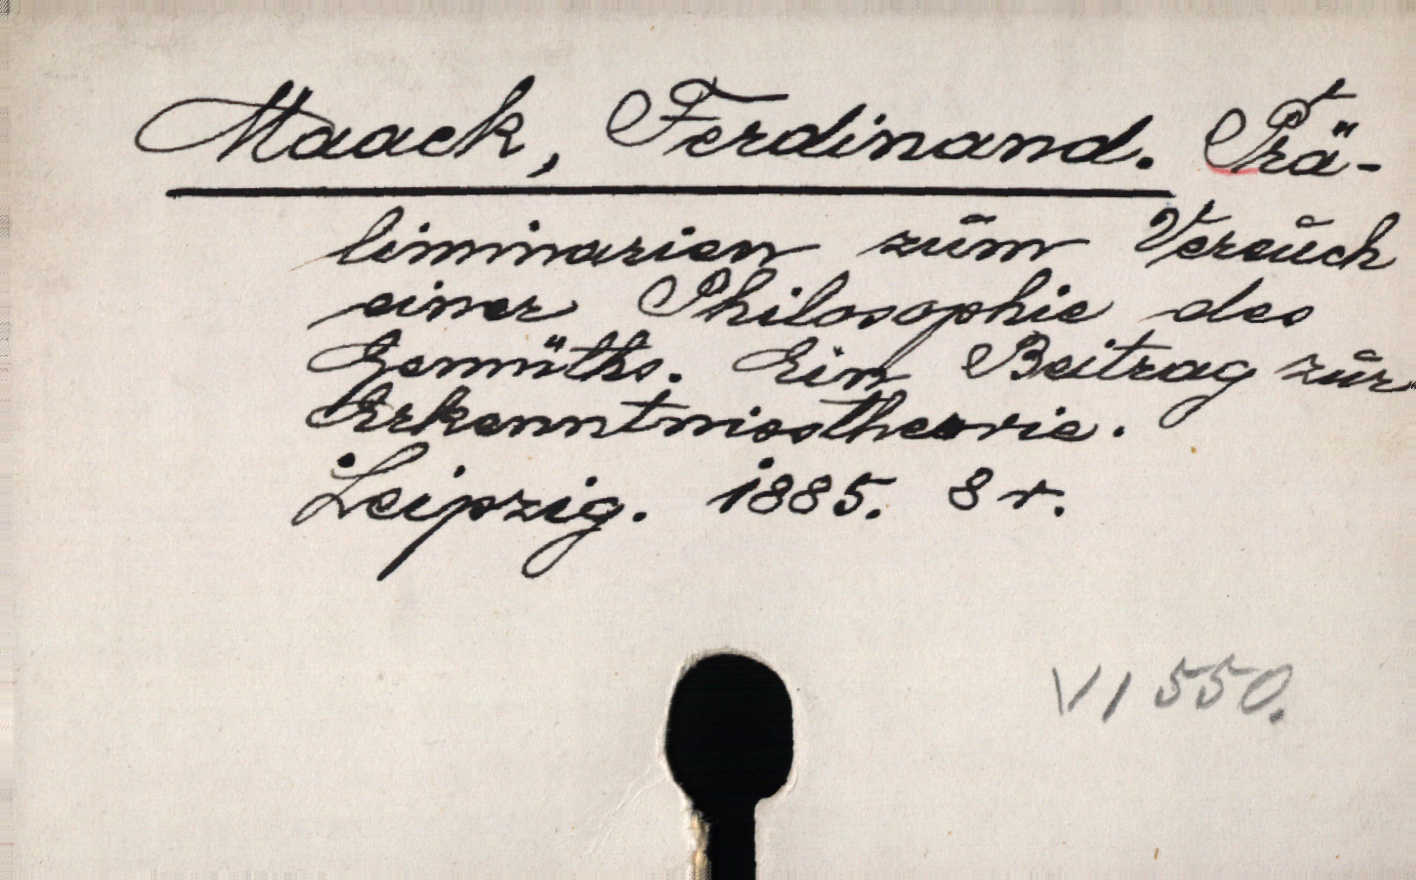 Maack, Ferdinand. Prä-
liminarien zum Versuch
einer Philosophie des
Gemüths. Ein Beitrag zur
Erkenntnisstheorie.
Leipzig. 1885. 8 r.
VI 550.